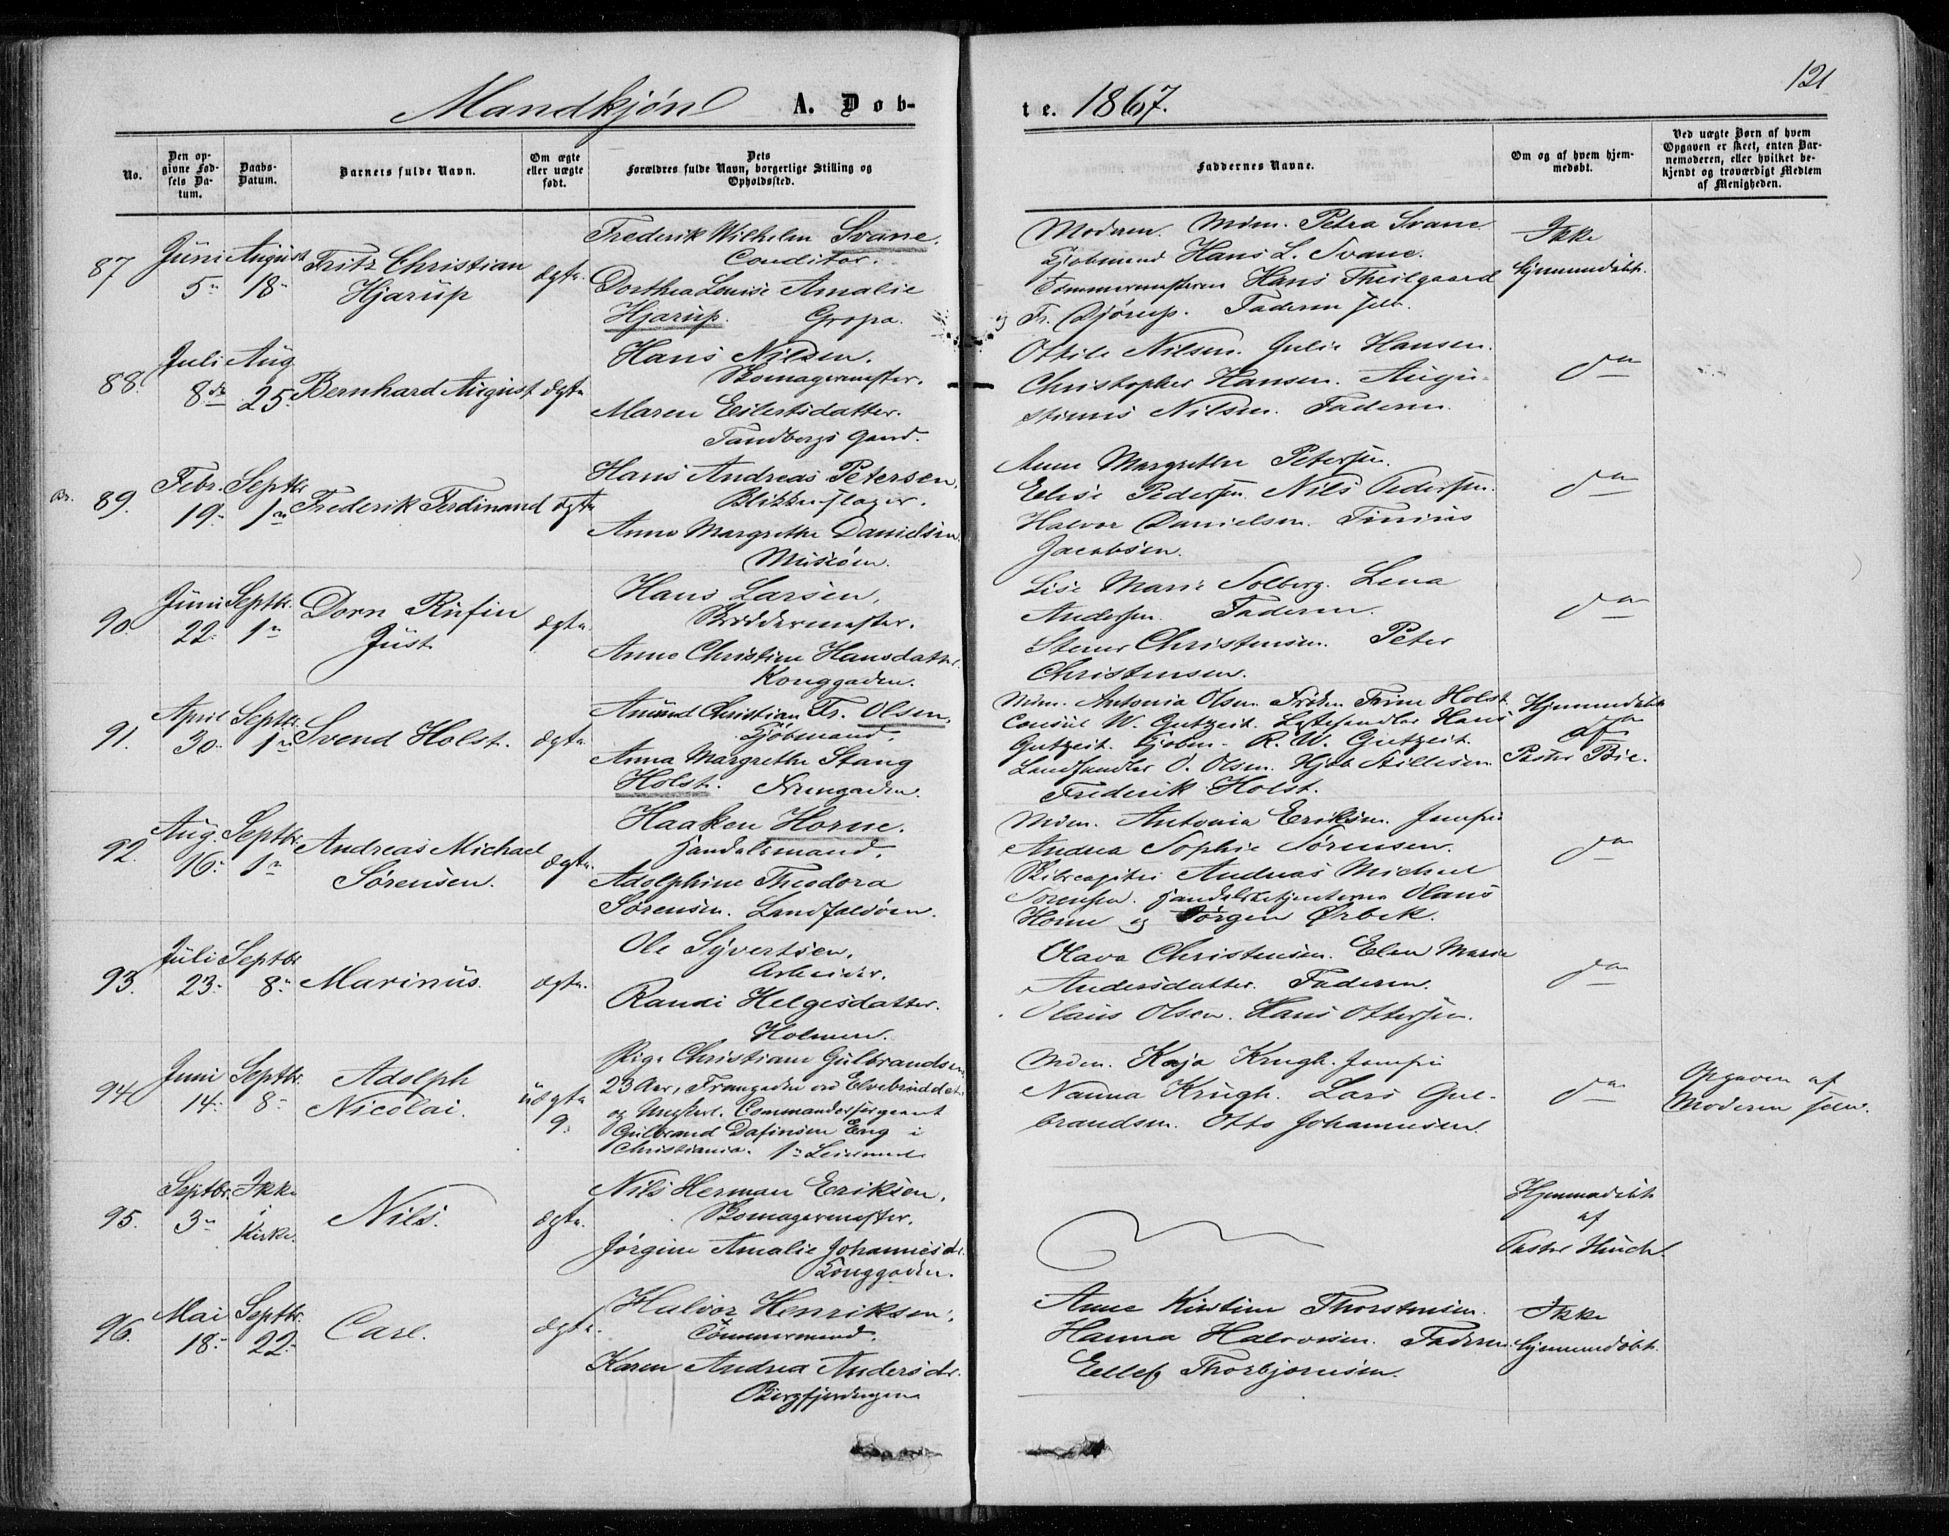 Mandkjøn A. Døb-
te. 1867.
121
No.
Den op-
givne Fød-
sels Da-
tum.
Daabs-
Datum.
Barnets fulde Navn.
Om ægte
eller uægte
født.
Dets
Forældres fulde Navn, borgerlige Stilling og
Opholdssted.
Faddernes Navne.
Om og af hvem hjem-
medøbt.
Ved uægte Børn af hvem
Opgaven er skeet, enten Bar-
nemoderen, eller hvilket be-
kjendt og troværdigt Medlem
af Menigheden.
87
Juni
5
August
18
Fritz Christian
Hjarup
ægte
Frederik Wilhelm Svane.
Conditor.
Dorthea Louise Amalie
Hjarup. Gropa.
Moderen. Mdm. Petra Svane
Kjøbmand Hans L. Svane.
Tømmermesteren Hans Theilgaard
Fr. Faderen selv.
Ikke
hjemmedøbt.
88.
Juli
8de
Aug
25
Bernhard August
ægte
Hans Nilsen.
Skomagermester.
Maren Eilertsdatter.
Tandbergs Gaard.
Ottile Nilsen. Julie Hansen.
Christopher Hansen. Augu-
stinus Nilsen. Faderen.
do
89.
Febr.
19
Septbr
1
Frederik Ferdinand
ægte
Hans Andreas Petersen.
Blikkenslager.
Anne Margrethe Danielsen
Musiøen.
Anne Margrethe Petersen.
Elise Pedersen. Nils Pedersen.
Halvor Danielsen. Tinius
Jacobsen.
do
90.
Juni
22
Septbr.
1
Dorn Rufin
Just
ægte.
Hans Larsen,
Skræddermester.
Anne Christine Hansdatter.
Konggaden.
Lise Marie Solberg. Lena
Andersen. Faderen.
Stener Christensen. Peter
Christensen.
do
91.
April
30
Septbr.
1
Svend Holst.
ægte.
Amund Christian Fr. Olsen.
Kjøbmand.
Anna Margrethe Stang
Holst.
Mdm. Antonia Olsen. Frøken Trine Holst
Consul W. Gutzeit. Hans
Gutzeit. Kjøbm. R. W. Gutzeit.
Landhandler O. Olsen.
Frederik Holst.
Hjemmedøbt
af
Pastor Bie.
92.
Aug.
16
Septbr.
1
Andreas Michael
Sørensen.
ægte.
Haaken Horne.
Handelsmand.
Adolphine Theodora
Sørensen. Landfaldøen.
Mdm. Antonia Eriksen. Jomfru
Andrea Sophie Sørensen.
Skibscapitei Andreas Michael
Sørensen. Handelsbetjenterne Olaus
Horne og Jørgen Ørbek.
do
93.
Juli
23
Septbr
8
Marinus
ægte.
Ole Syvertsen.
Arbeider.
Randi Helgesdatter.
Holmen.
Olava Christensen. Elen Marie
Andersdatter. Faderen.
Olaus Olsen. Hans Ottersen.
do
94
Juni
14
Septbr.
8
Adolph
Nicolai.
uægte
9.
Pige Christiane Gulbrandsen
23 Aar, Trangaden ved Elvebruddet
og Ungkarl. Commandersergeant
Gulbrand Dafinsen Eng i
Christiania. 1 Leiermaal
Mdm. Kaja Krugh. Jomfru
Nanna Krugh. Lars Gul-
brandsen. Otto Johannesen.
do
Opgaven af
Moderen selv.
95.
Septbr.
3
Ikke
i
Kirke.
Nils.
ægte.
Nils Herman Eriksen.
Skomagermester.
Jørgine Amalie Johannesdr.
Konggaden.
Hjemmedøbt
af
Pastor
96.
Mai
18
Septbr.
22
Carl.
ægte.
Halvor Henriksen.
Tømmermand.
Karen Andrea Andersdr.
Bergfjerdingen
Anne Kirstine Thorstensen.
Hanna Halvorsen. Faderen.
Ellef Thorbjørnsen.
Ikke
hjemmedøbt.